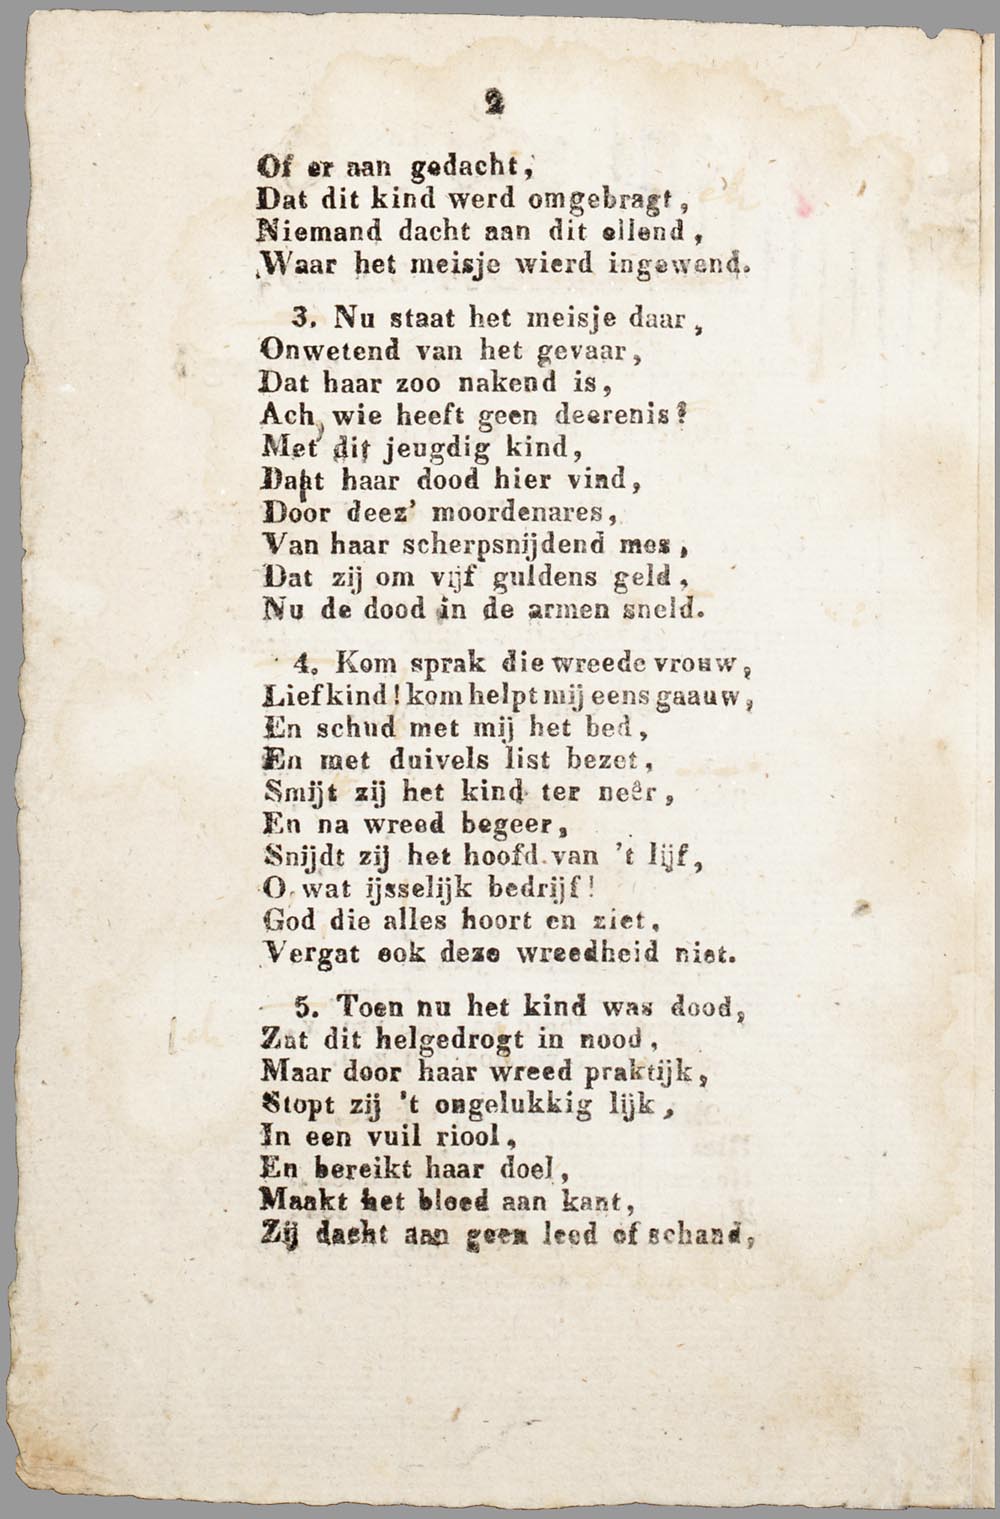 2
Of er aan gedacht,
Dat dit kind werd omgebragt,
Niemand dacht aan dit ellend,
Waar het meisje wierd ingewend.
3. Nu staat het meisje daar,
Onwetend van het gevaar,
Dat haar zoo nakend is,
Ach, wie heeft geen deerenis?
Met dit jeugdig kind,
Dat haar dood hier vind,
Door deez' moordenares,
Van haar scherpsnijdend mes,
Dat zij om vijf guldens geld,
Nu de dood in de armen sneld.
4. Kom sprak die wreede vrouw,
Lief kind! kom helpt mij eens gaauw,
En schud met mij het bed,
En met duivels list bezet,
Smijt zij het kind ter neêr,
En na wreed begeer,
Snijdt zij het hoofd van 't lijf,
O wat ijsselijk bedrijf!
God die alles hoort en ziet,
Vergat ook deze wreedheid niet.
5. Toen nu het kind was dood,
Zat dit helgedrogt in nood,
Maar door haar wreed praktijk,
Stopt zij 't ongelukkig lijk,
In een vuil riool,
En bereikt haar doel,
Maakt het bloed aan kant,
Zij dacht aan geen leed of schand,